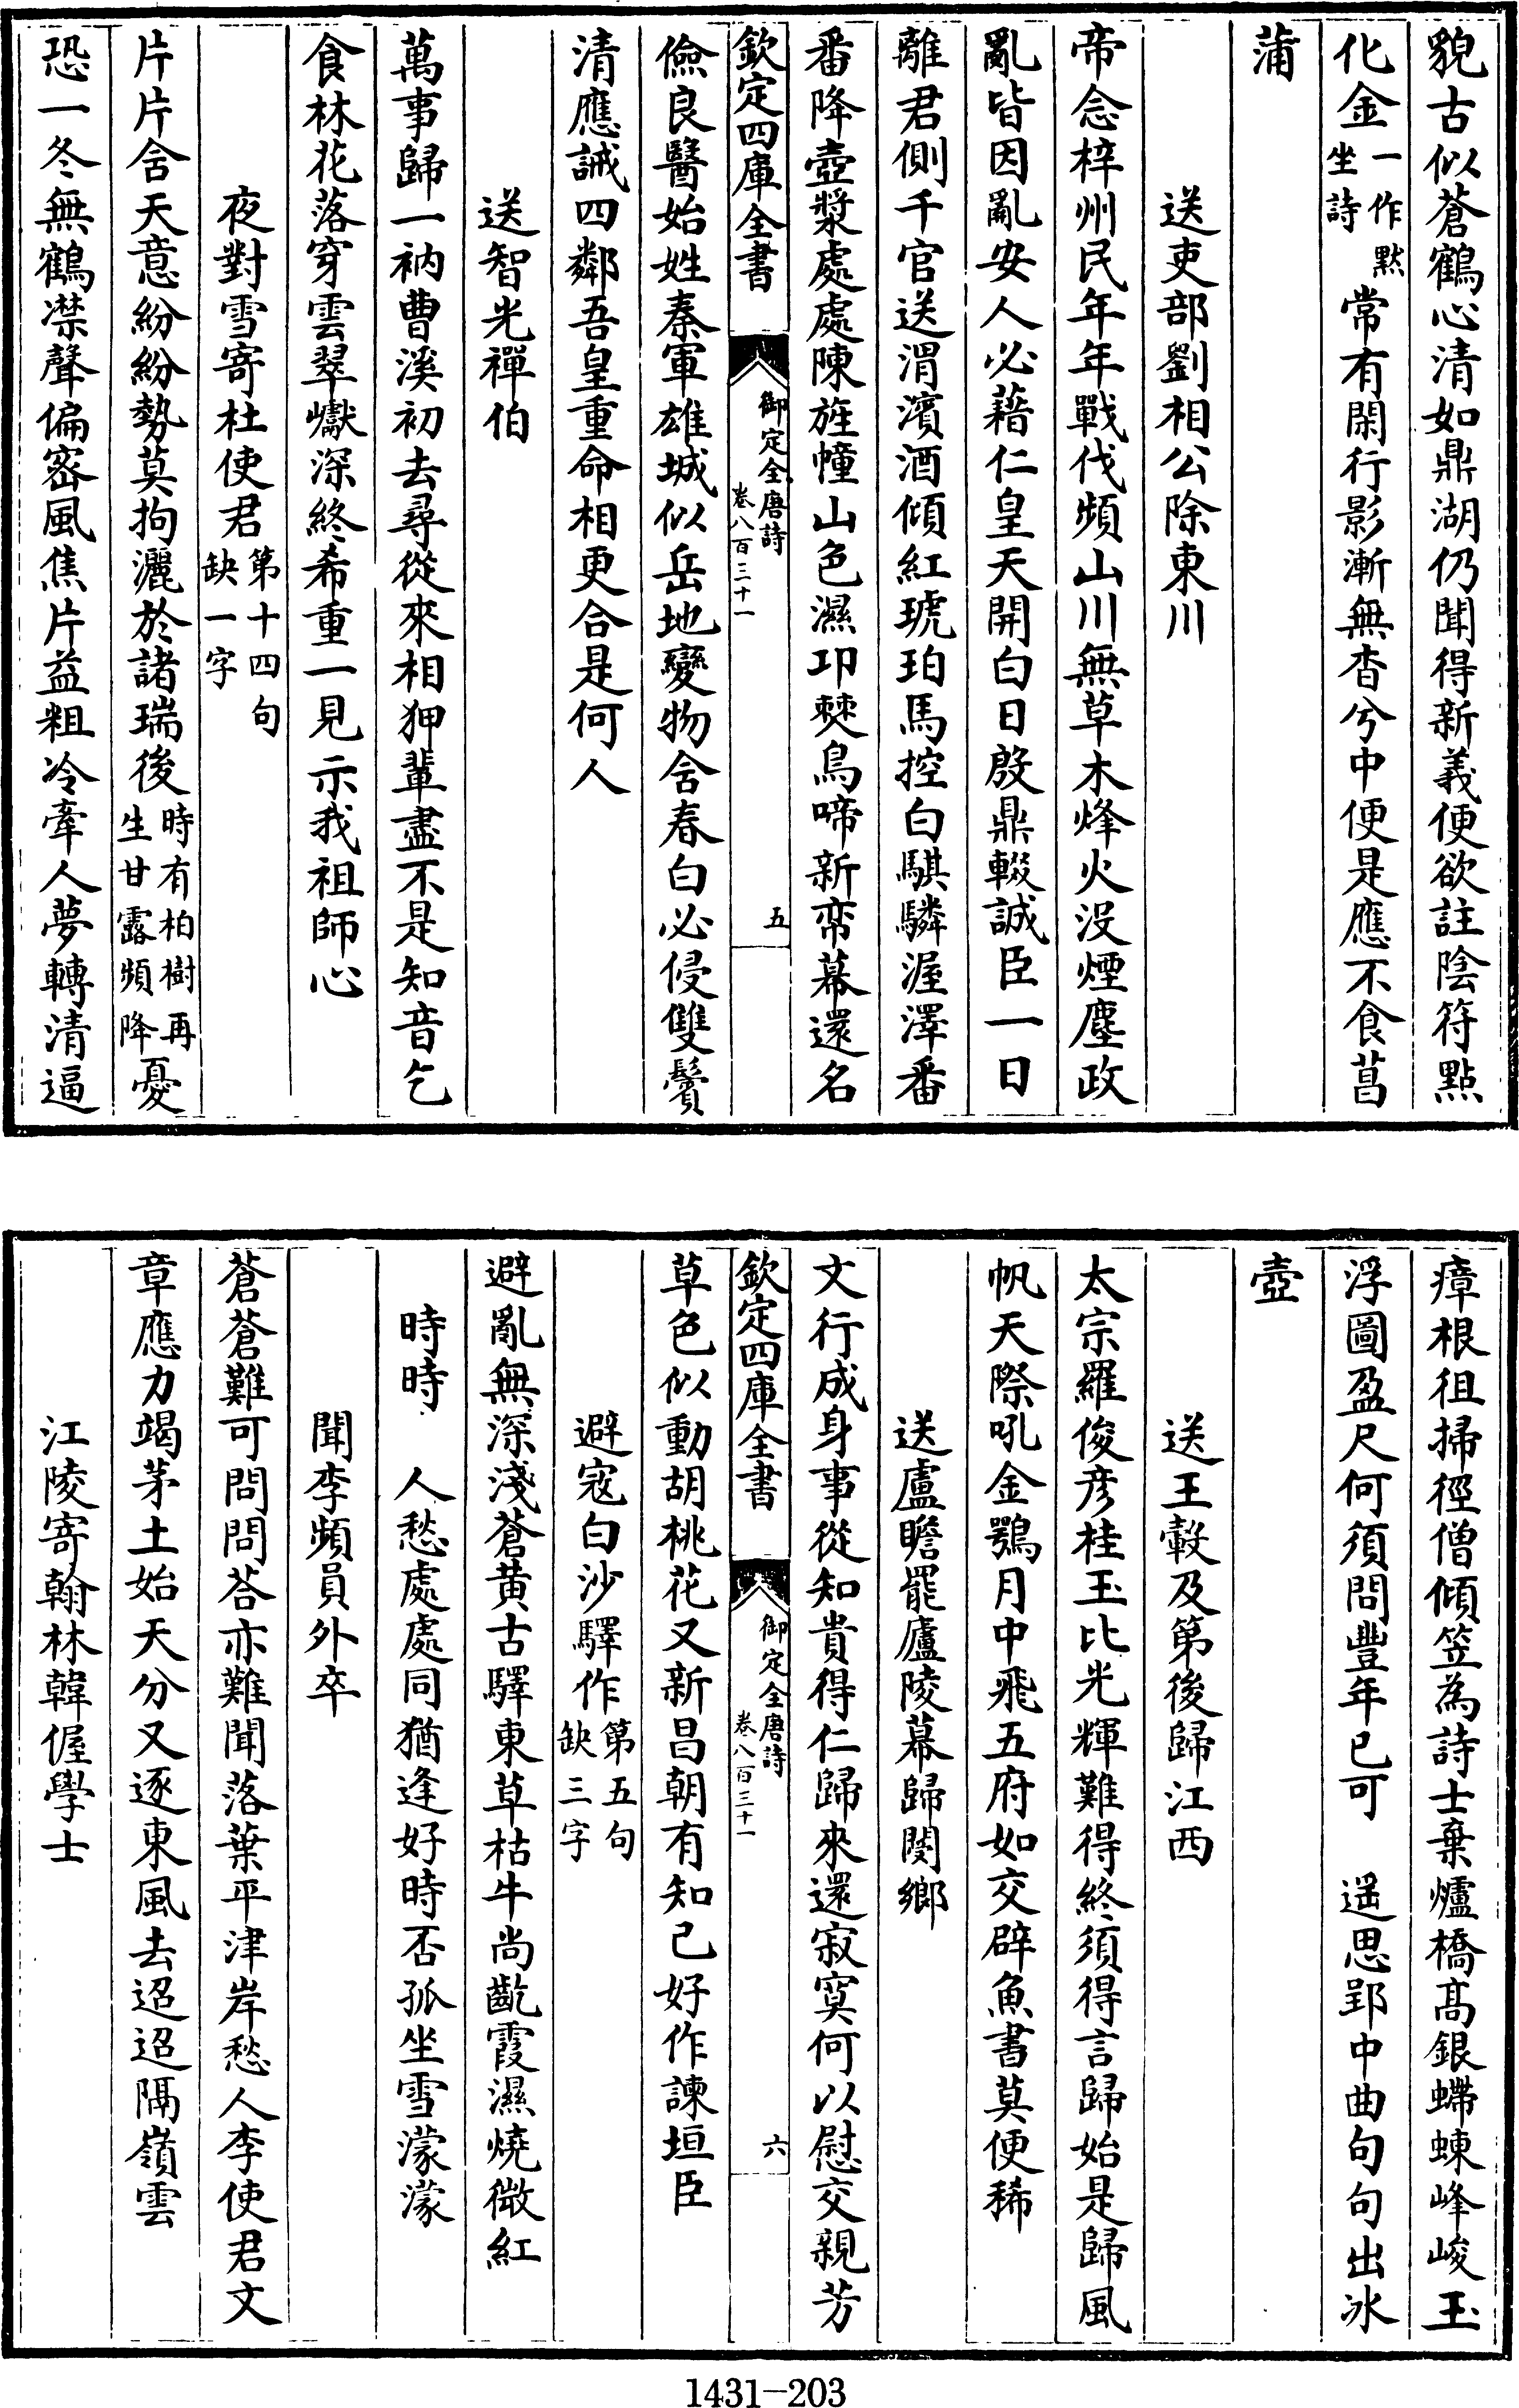 貌古似蒼鶴心清如鼎湖仍聞得新義便欲註陰符點
化金一作默坐詩常有閑行影漸無杳兮中便是應不食菖
蒲
送吏部劉相公除東川
帝念梓州民年年戰伐頻山川無草木烽火沒煙塵政
亂皆因亂安人必藉仁皇天開白日殷鼎輟誠臣一日
離君側千官送渭濱酒傾紅琥珀馬控白騏驎渥澤番
番降壺漿處處陳旌幢山色濕卭僰鳥啼新帟幕還名
欽定四庫全書 御定全唐詩 卷八百三十一 五
儉良醫始姓秦軍雄城似岳地變物含春白必侵雙鬢
清應誡四鄰吾皇重命相更合是何人
送智光禪伯
萬事歸一衲曹溪初去尋從來相狎輩盡不是知音乞
食林花落穿雲翠巘深終希重一見示我祖師心
夜對雪寄杜使君第十四句缺一字
片片含天意紛紛勢莫拘灑於諸瑞後時有柏樹再生甘露頻降憂
恐一冬無鶴凚聲偏密風焦片益粗冷牽人夢轉清逼
瘴根徂掃徑僧傾笠為詩士棄爐橋高銀螮蝀峰峻玉
浮圖盈尺何須問豐年已可 遥思郢中曲句句出冰
壺
送王轂及第後歸江西
太宗羅俊彦桂玉比光輝難得終須得言歸始是歸風
帆天際吼金鶚月中飛五府如交辟魚書莫便稀
送盧瞻罷廬陵幕歸閿鄉
文行成身事從知貴得仁歸來還寂寞何以慰交親芳
欽定四庫全書 御定全唐詩 卷八百三十一 六
草色似動胡桃花又新昌朝有知己好作諫垣臣
避寇白沙驛作第五句缺三字
避亂無深淺蒼黄古驛東草枯牛尚齕霞濕燒微紅
時時 人愁處處同猶逢好時否孤坐雪濛濛
聞李頻員外卒
蒼蒼難可問問荅亦難聞落葉平津岸愁人李使君文
章應力竭茅土始天分又逐東風去迢迢隔嶺雲
江陵寄翰林韓偓學士
1431-203